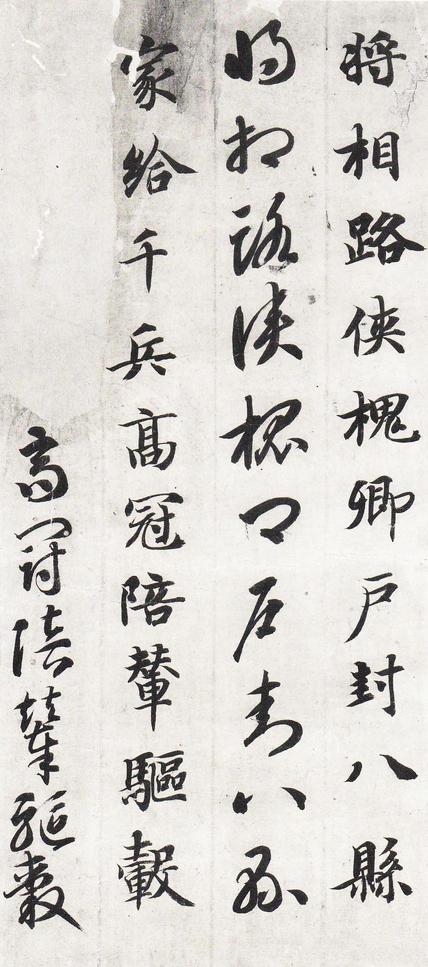 将相路侠槐卿戸封八縣
将相路侠槐卿戸封八縣
家給千兵高冠陪輦驅轂
高冠陪輦驅轂